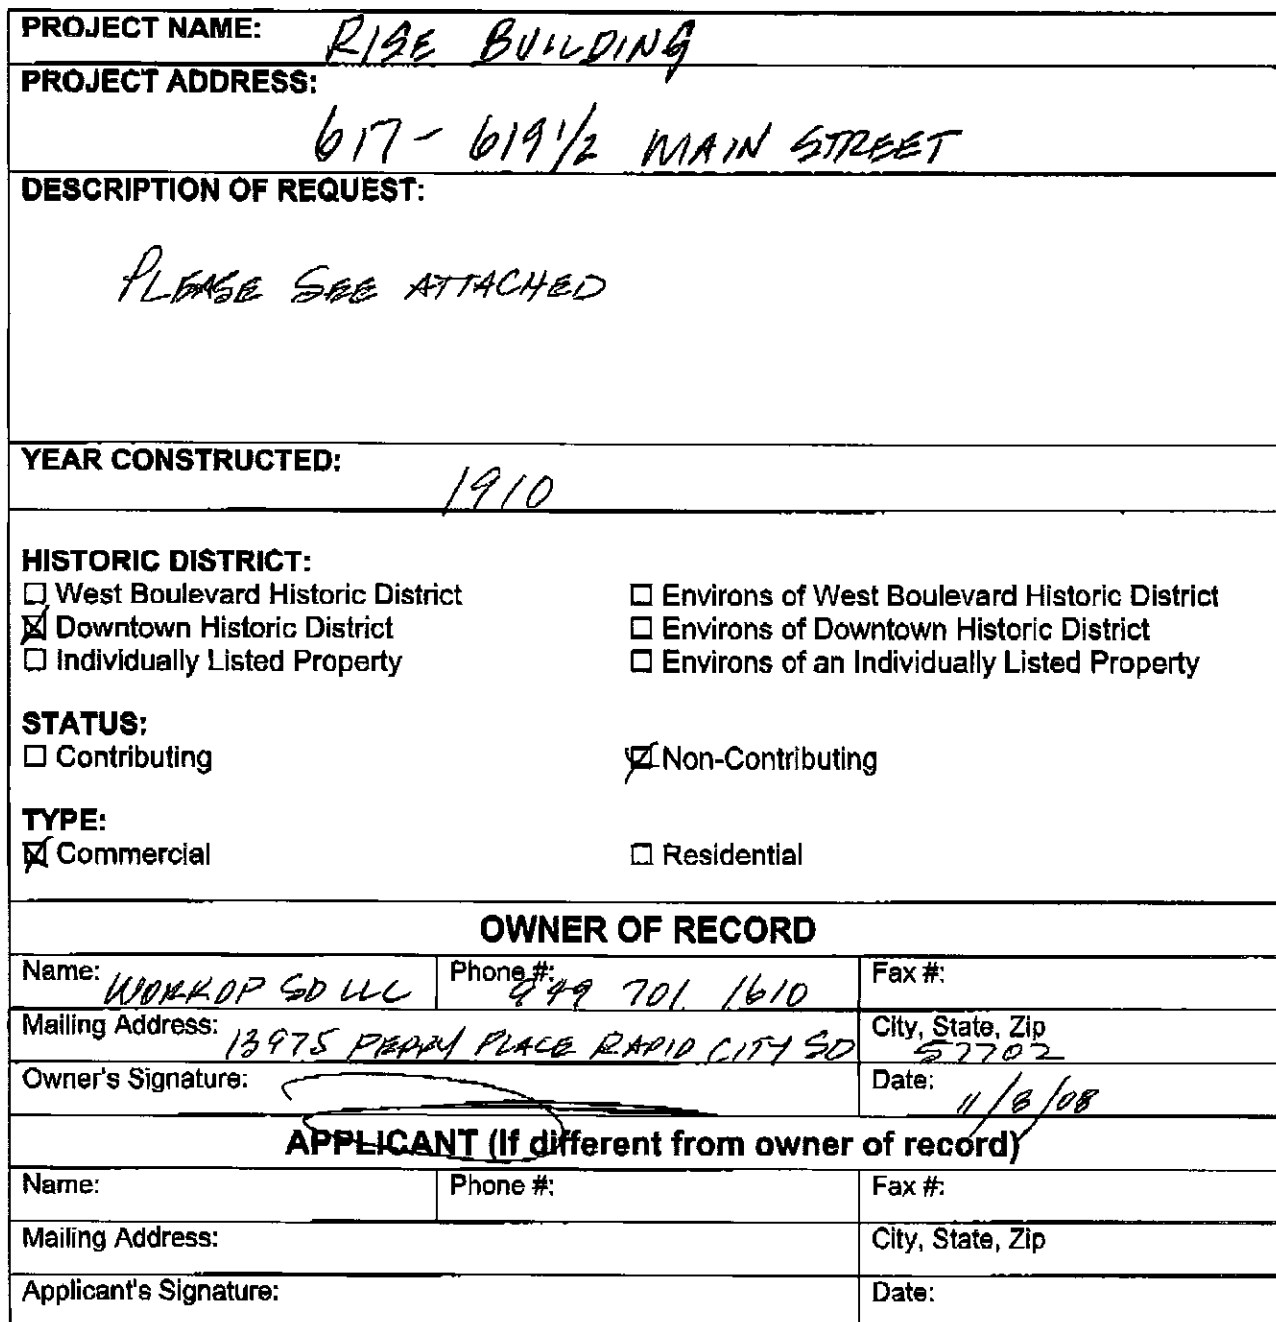 PROJECT NAME: RISE BUILDING
PROJECT ADDRESS:
617 - 619 1/2 MAIN STREET
DESCRIPTION OF REQUEST:
PLEASE SEE ATTACHED
YEAR CONSTRUCTED: 1910
HISTORIC DISTRICT:
☐ West Boulevard Historic District ☐ Environs of West Boulevard Historic District
☒ Downtown Historic District ☐ Environs of Downtown Historic District
☐ Individually Listed Property ☐ Environs of an Individually Listed Property
STATUS:
☐ Contributing ☒ Non-Contributing
TYPE:
☒ Commercial ☐ Residential
OWNER OF RECORD
Name: WORKOP SD LLC Phone #: 949 701 1610 Fax #:
Mailing Address: 13975 PERRY PLACE RAPID CITY SD City, State, Zip 57702
Owner's Signature: Date: 11/8/08
APPLICANT (If different from owner of record)
Name: Phone #: Fax #:
Mailing Address: City, State, Zip
Applicant's Signature: Date: